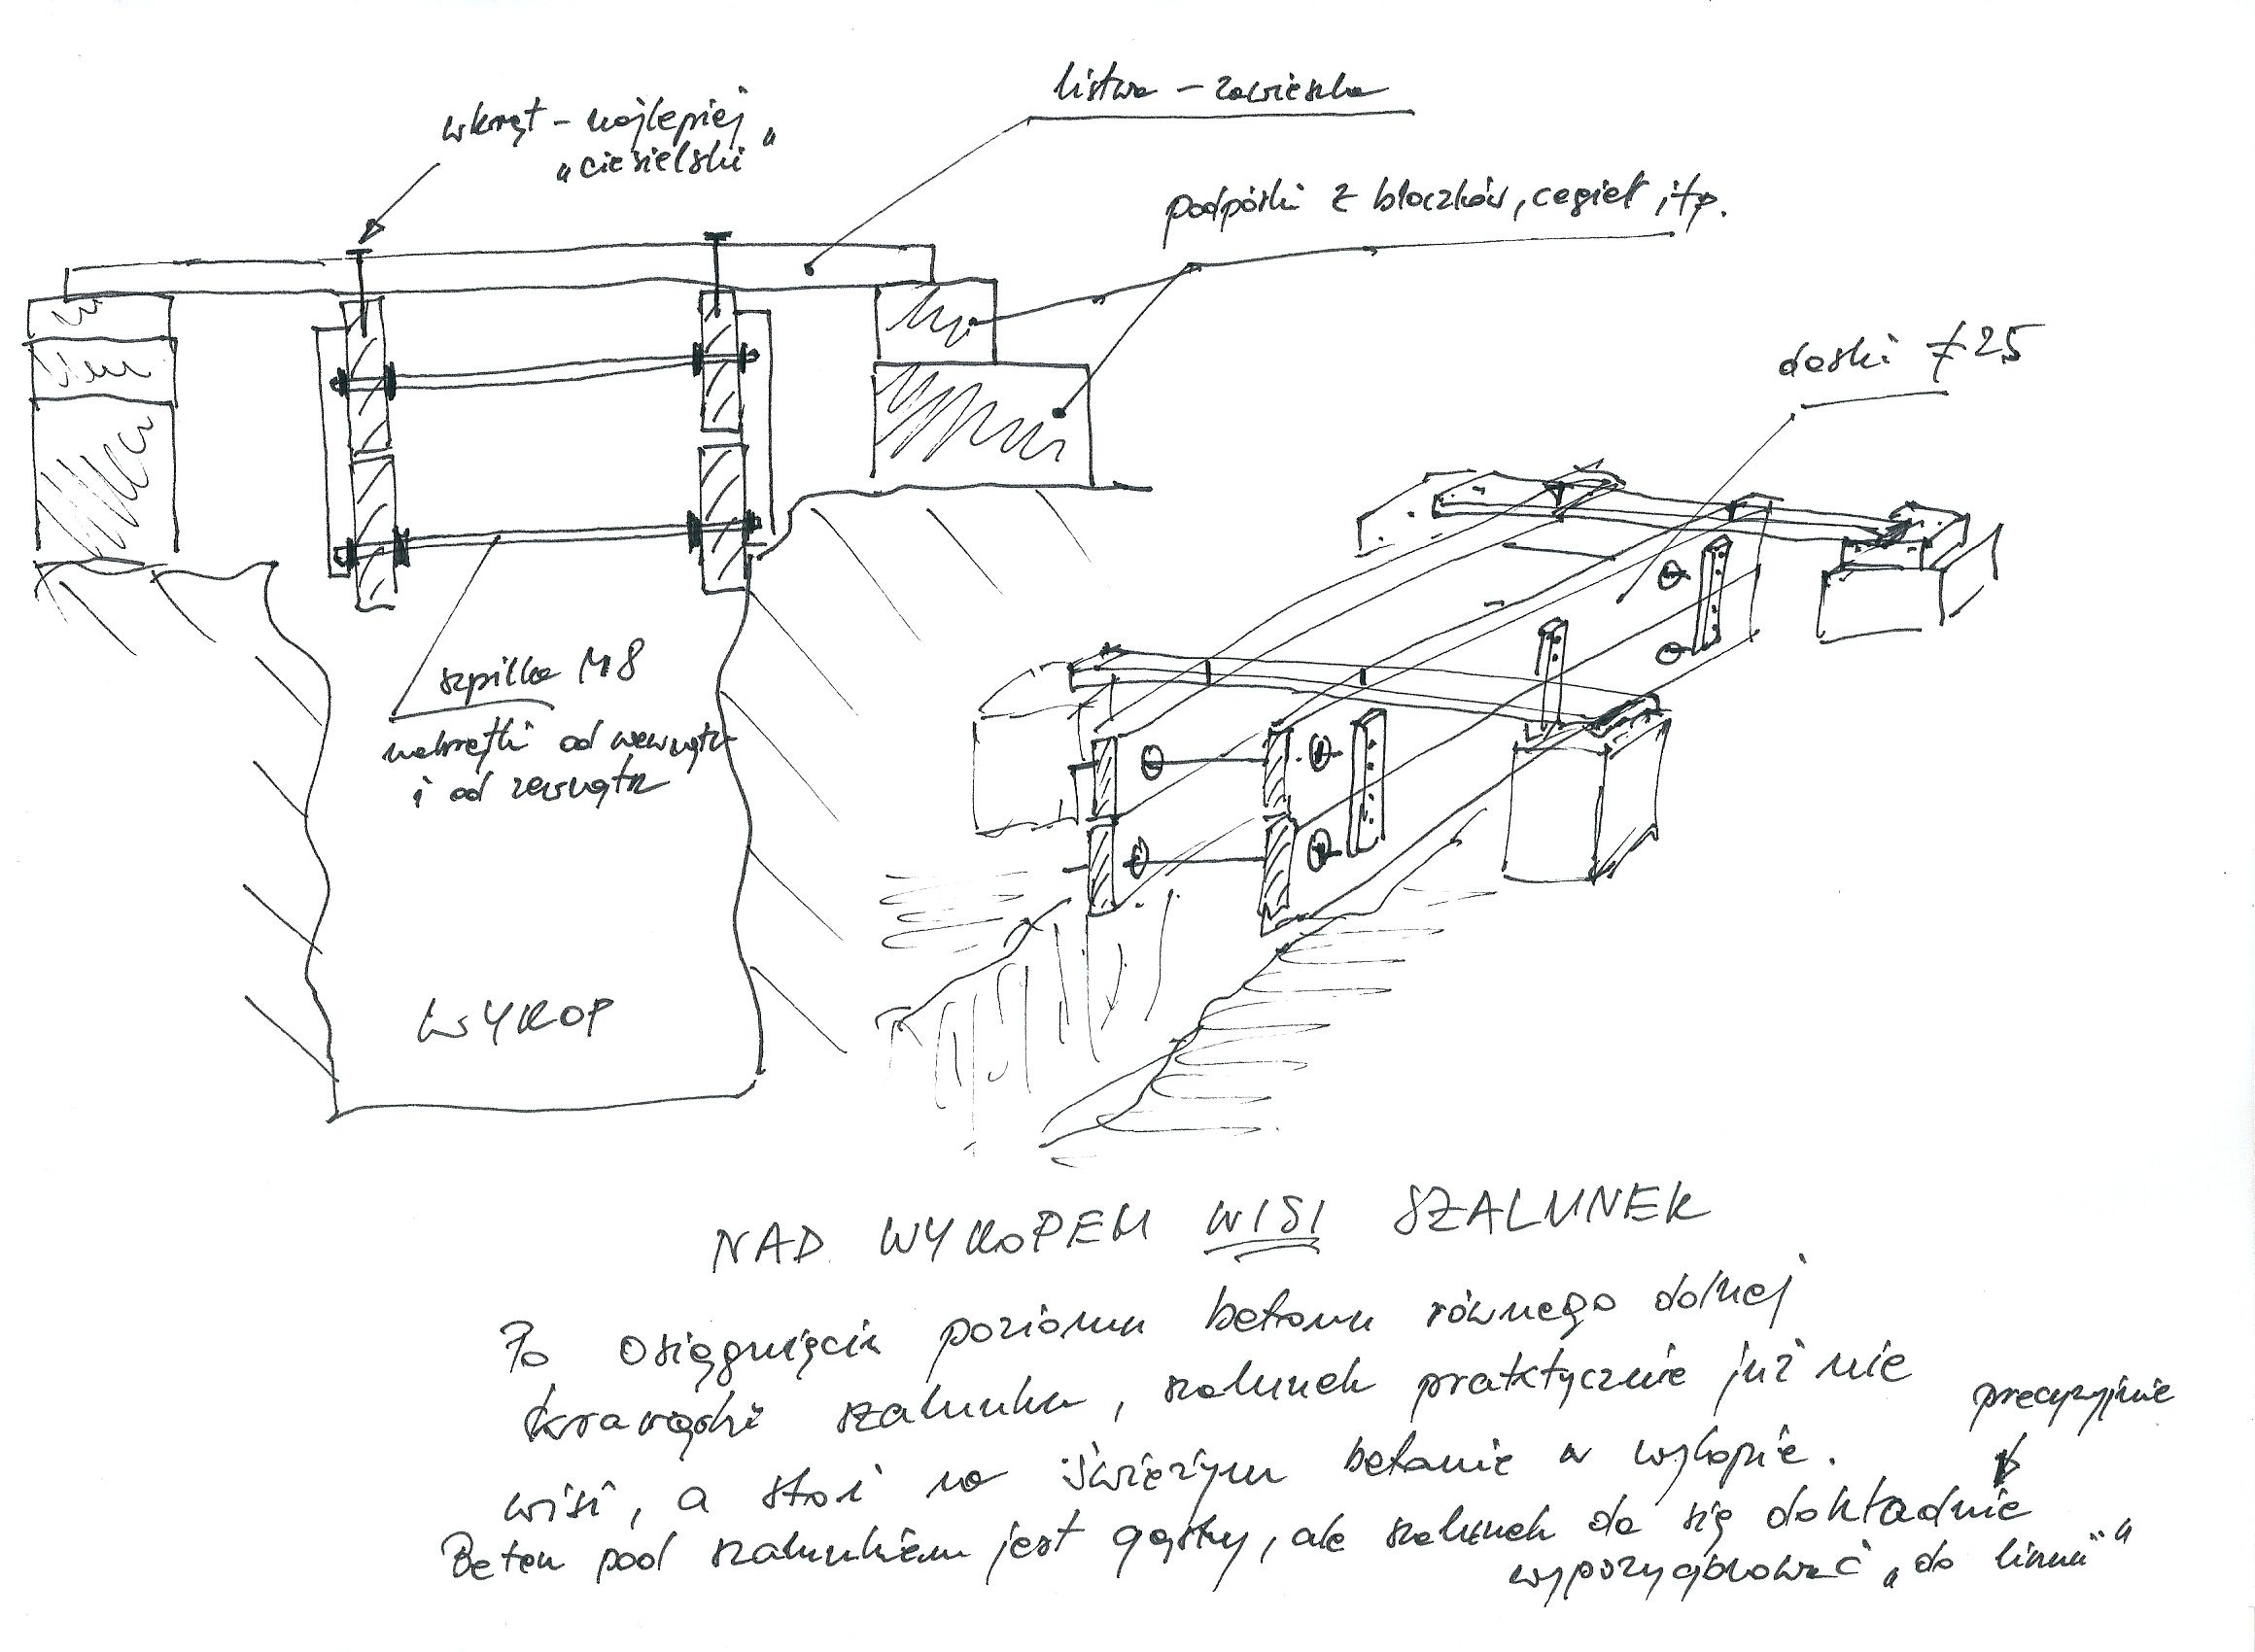 wkręt – najlepiej
„ciesielski"
listwa – zawieszka
podpórki z bloczków, cegieł, itp.
deski ≠ 25
szpilka M8
nakrętki od wewnątrz
i od zewnątrz
WYKOP
NAD WYKOPEM WISI SZALUNEK
Po osiągnięciu poziomu betonu równego dolnej
krawędzi szalunku, szalunek praktycznie już nie
wisi, a stoi na świeżym betonie w wykopie.
precyzyjnie
Beton pod szalunkiem jest gęsty, ale szalunek da się dokładnie
wypozycjonować „do linii"